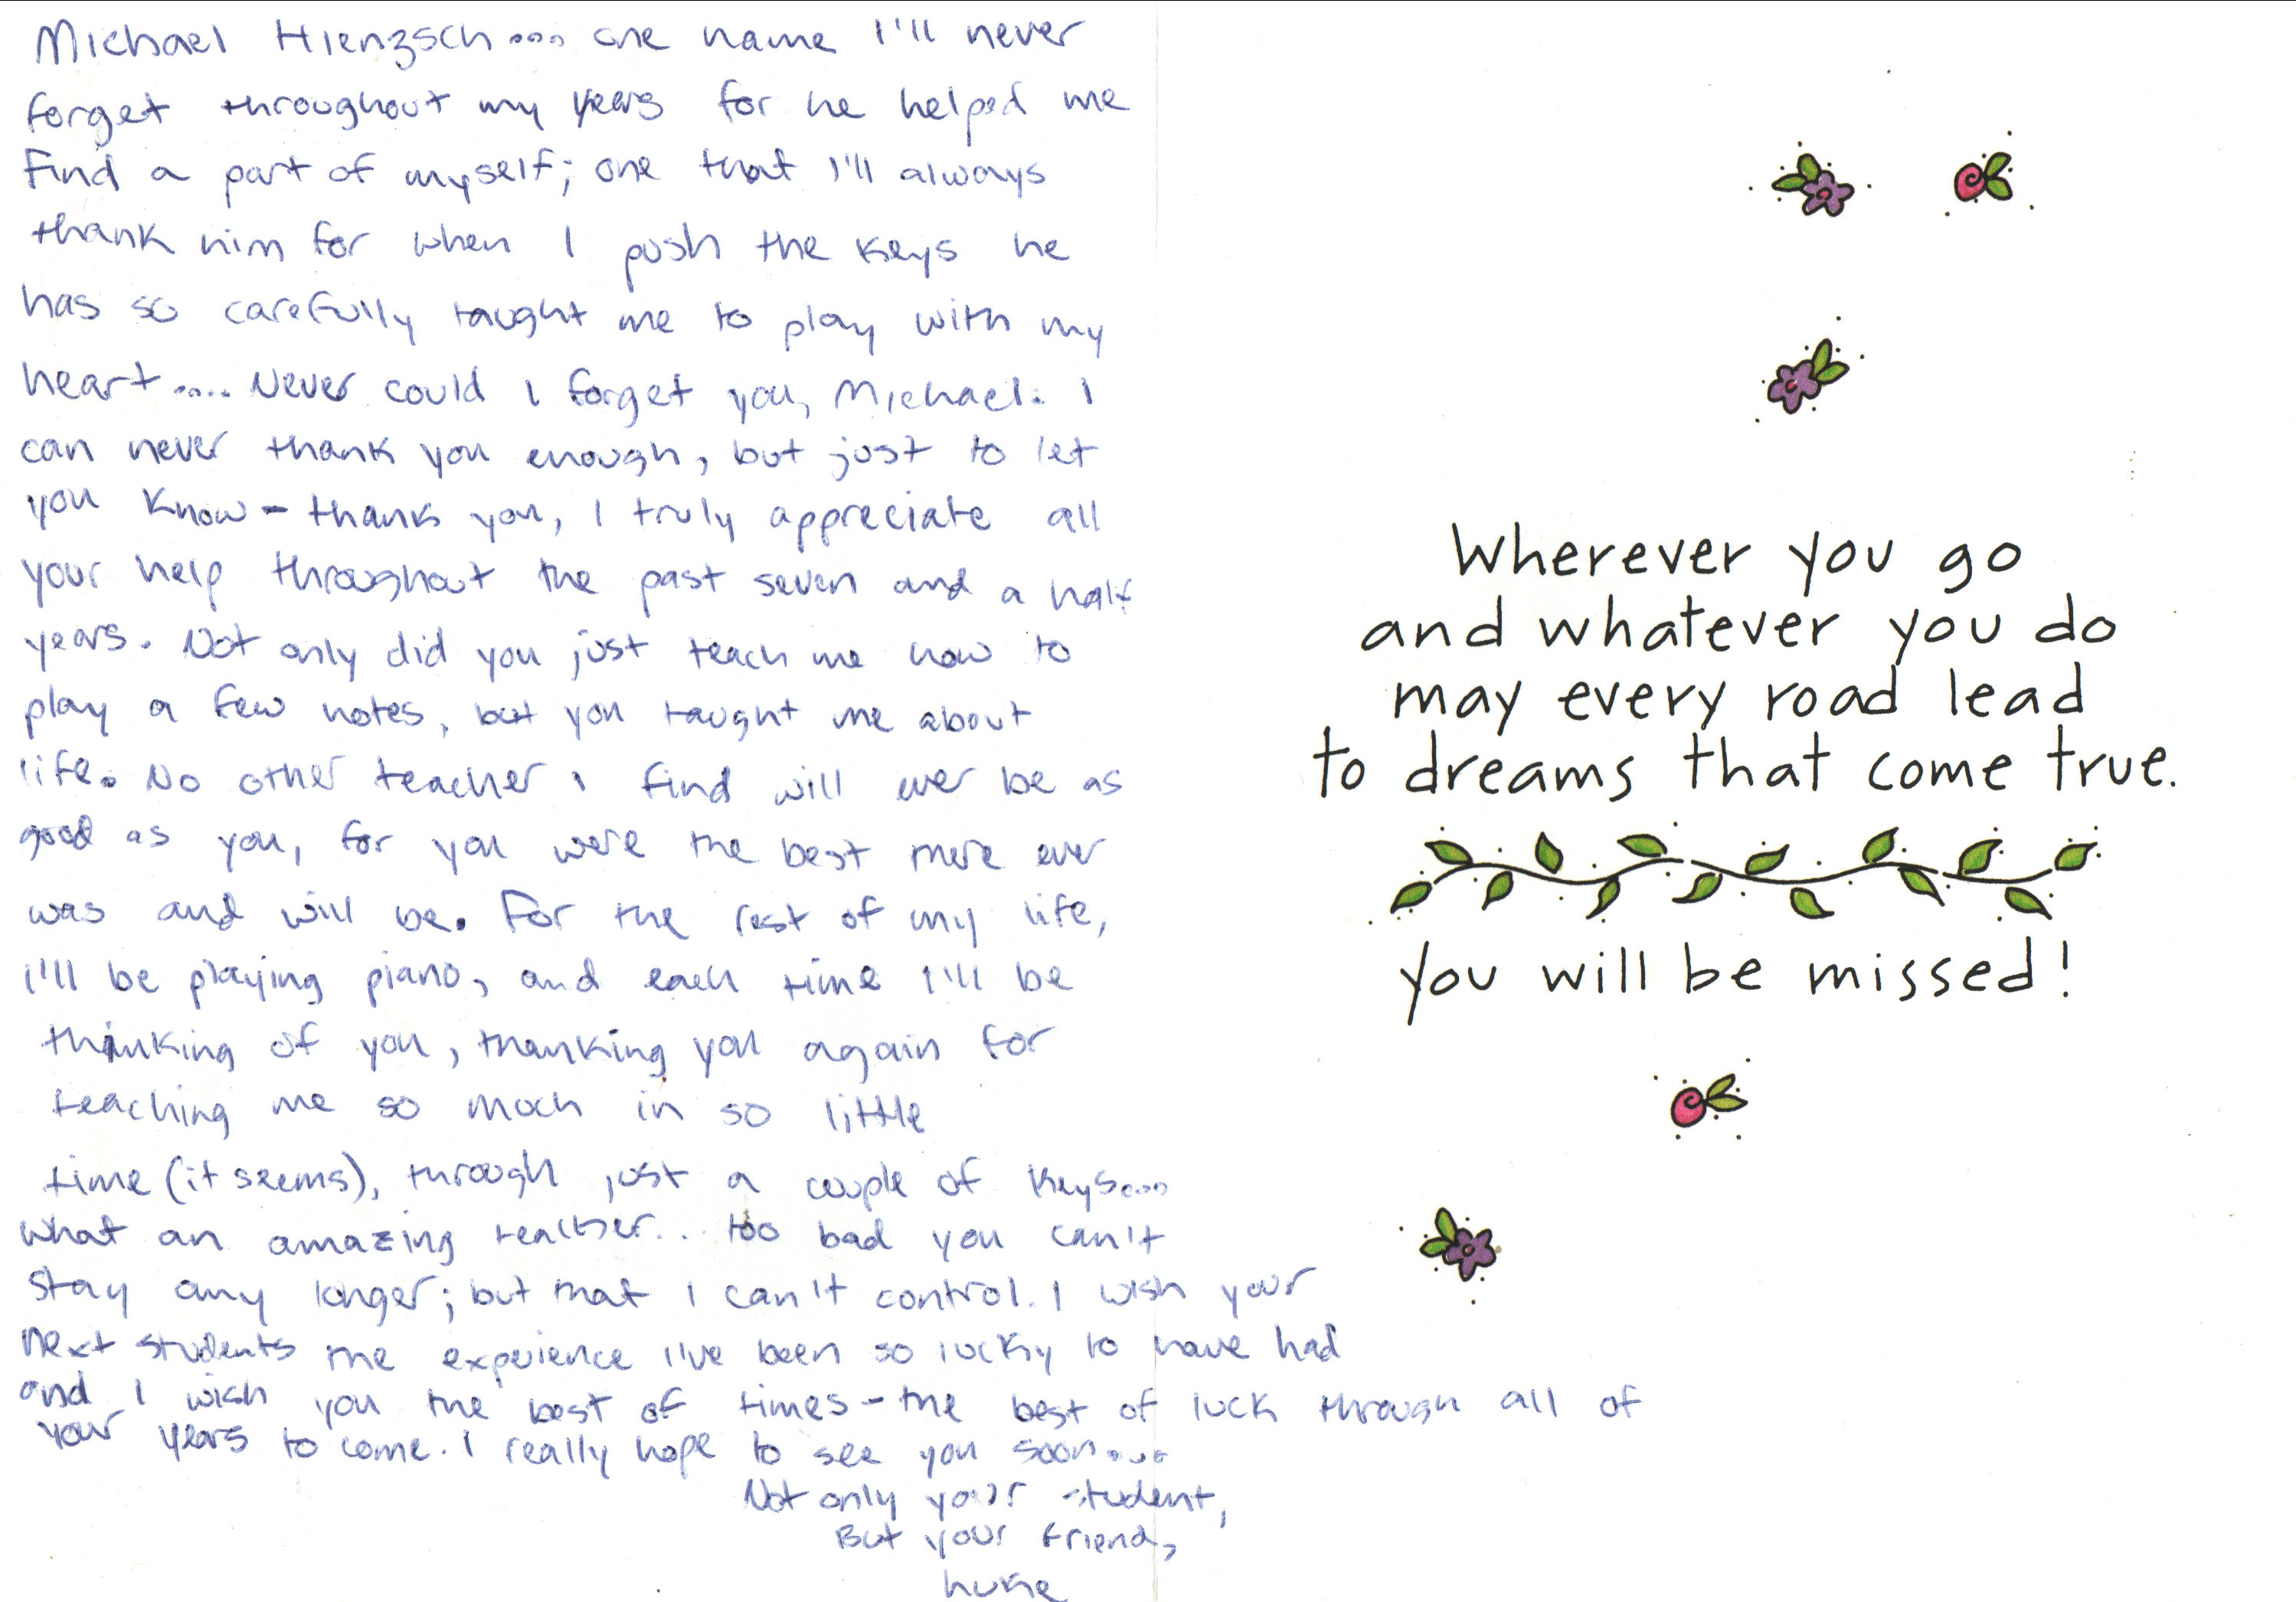 Michael Hienzsch.... one name I'll never
forget throughout my years for he helped me
find a part of myself; one that I'll always
thank him for when I push the keys he
has so carefully taught me to play with my
heart..... Never could I forget you, Michael. I
can never thank you enough, but just to let
you know - thank you, I truly appreciate all
your help throughout the past seven and a half
years. Not only did you just teach me how to
play a few notes, but you taught me about
life. No other teacher I find will ever be as
good as you, for you were the best there ever
was and will be. For the rest of my life,
I'll be playing piano, and each time I'll be
thinking of you, thanking you again for
teaching me so much in so little
time (it seems), through just a couple of keys....
what an amazing teacher... too bad you can't
stay any longer; but that I can't control. I wish your
next students the experience I've been so lucky to have had
and I wish you the best of times - the best of luck through all of
your years to come. I really hope to see you soon....
Not only your student,
But your friend,
Wherever you go
and whatever you do
may every road lead
to dreams that come true.
you will be missed!